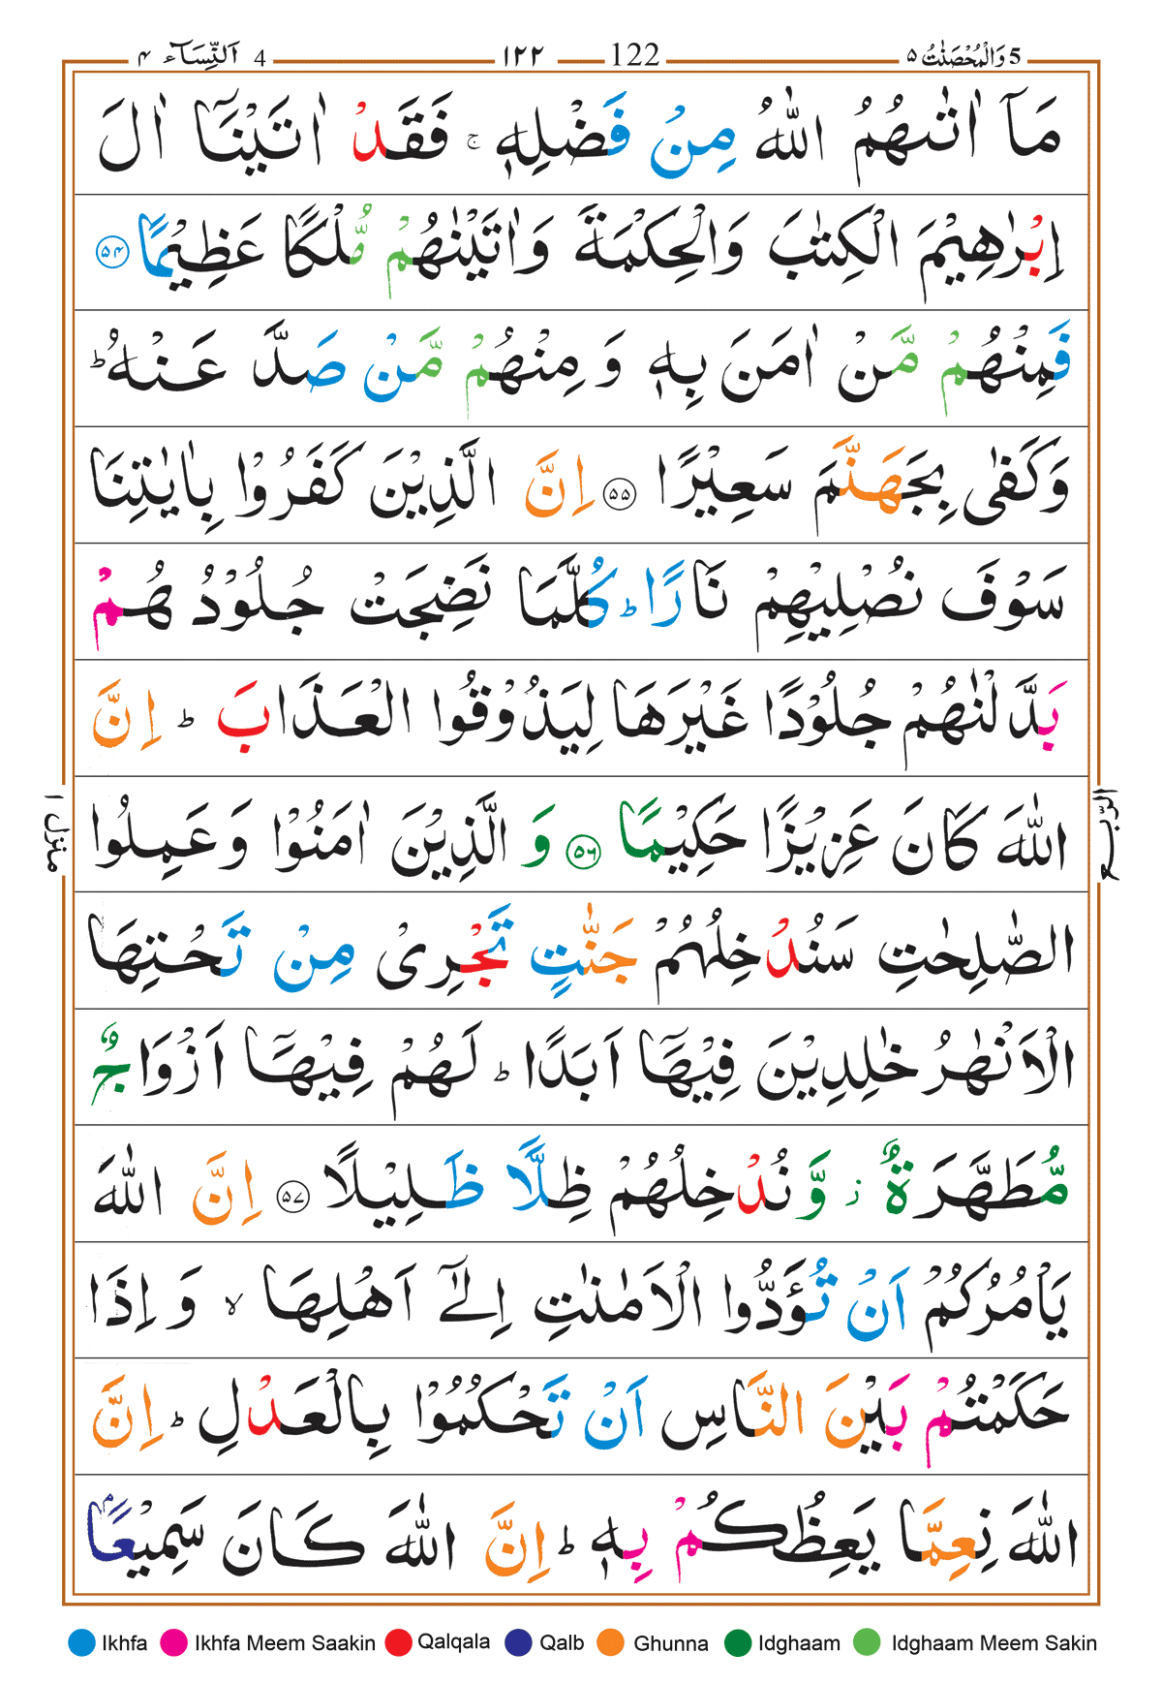 5 وَالْمُحْصَنٰتُ ۵ 122 ۱۲۲ 4 اَلنِّسَآء ۴
مَاۤ اٰتٰىهُمُ اللّٰهُ مِنْ فَضْلِهٖ ۚ فَقَدْ اٰتَيْنَاۤ اٰلَ
اِبْرٰهِيْمَ الْكِتٰبَ وَالْحِكْمَةَ وَاٰتَيْنٰهُمْ مُّلْكًا عَظِيْمًا ۵۴
فَمِنْهُمْ مَّنْ اٰمَنَ بِهٖ وَ مِنْهُمْ مَّنْ صَدَّ عَنْهُ ؕ
وَكَفٰى بِجَهَنَّمَ سَعِيْرًا ۵۵ اِنَّ الَّذِيْنَ كَفَرُوْا بِاٰيٰتِنَا
سَوْفَ نُصْلِيْهِمْ نَارًا ؕ كُلَّمَا نَضِجَتْ جُلُوْدُ هُمْ
بَدَّ لْنٰهُمْ جُلُوْدًا غَيْرَهَا لِيَذُوْقُوا الْعَذَابَ ؕ اِنَّ
اللّٰهَ كَانَ عَزِيْزًا حَكِيْمًا ۵۶ وَ الَّذِيْنَ اٰمَنُوْا وَ عَمِلُوا
الصّٰلِحٰتِ سَنُدْخِلُهُمْ جَنّٰتٍ تَجْرِىْ مِنْ تَحْتِهَا
الْاَنْهٰرُ خٰلِدِيْنَ فِيْهَاۤ اَبَدًا ؕ لَهُمْ فِيْهَاۤ اَزْوَاجٌ
مُّطَهَّرَةٌ ؗ وَّ نُدْخِلُهُمْ ظِلًّا ظَلِيْلًا ۵۷ اِنَّ اللّٰهَ
يَاْمُرُكُمْ اَنْ تُؤَدُّوا الْاَمٰنٰتِ اِلٰٓى اَهْلِهَا ۙ وَ اِذَا
حَكَمْتُمْ بَيْنَ النَّاسِ اَنْ تَحْكُمُوْا بِالْعَدْلِ ؕ اِنَّ
اللّٰهَ نِعِمَّا يَعِظُكُمْ بِهٖ ؕ اِنَّ اللّٰهَ كَانَ سَمِيْعًۢا
الرّبع
منزل ۱
Ikhfa Ikhfa Meem Saakin Qalqala Qalb Ghunna Idghaam Idghaam Meem Sakin